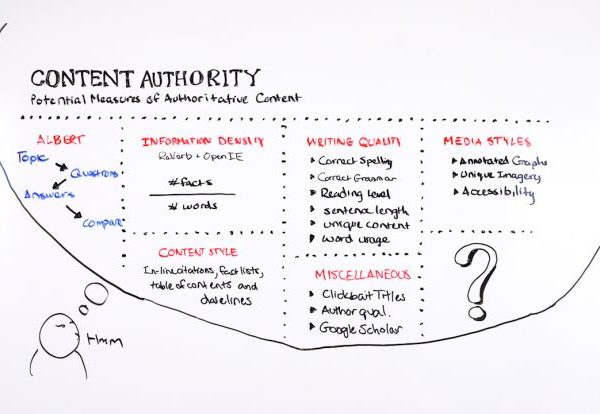 CONTENT AUTHORITY
Potential Measures of Authoritative Content
ALBERT
Topic
Questions
Answers
Compare
INFORMATION DENSITY
ReVerb + OpenIE
# facts
# words
CONTENT STYLE
In-line citations, fact lists,
table of contents and
datelines
WRITING QUALITY
Correct Spelling
Correct Grammar
Reading level
sentence length
unique content
word usage
MISCELLANEOUS
Clickbait Titles
Author qual.
Google Scholar
MEDIA STYLES
Annotated Graphs
Unique Imagery
Accessibility
?
Hmm